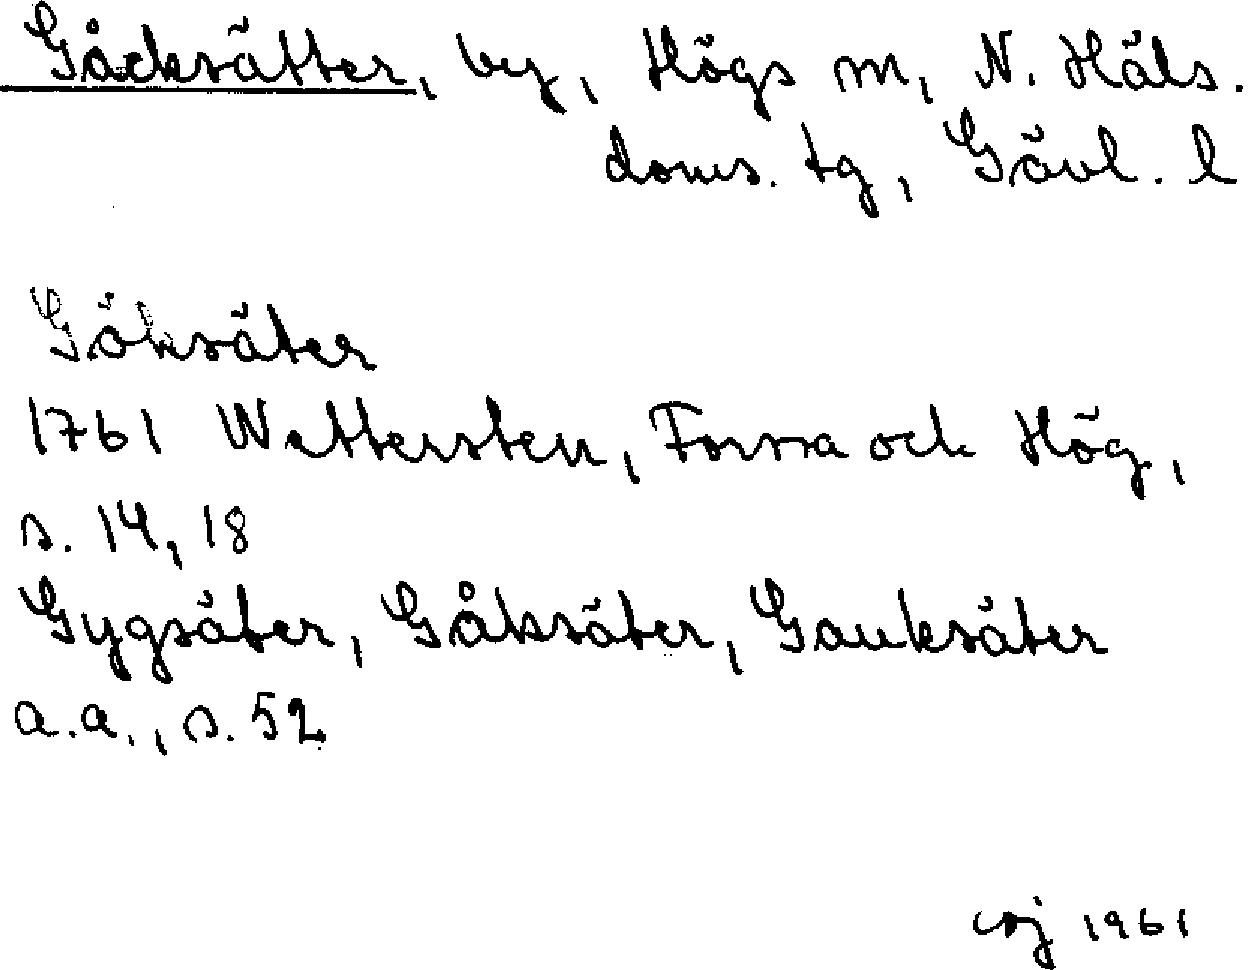 Gåcksätter, by, Högs sn, N. Häls.
doms. tg, Gävl. l
Göksäter
1761 Wettersten, Forssa och Hög,
s. 14, 18
Gygsäter, Gåksäter, Gauksäter
a.a., s. 52
1961